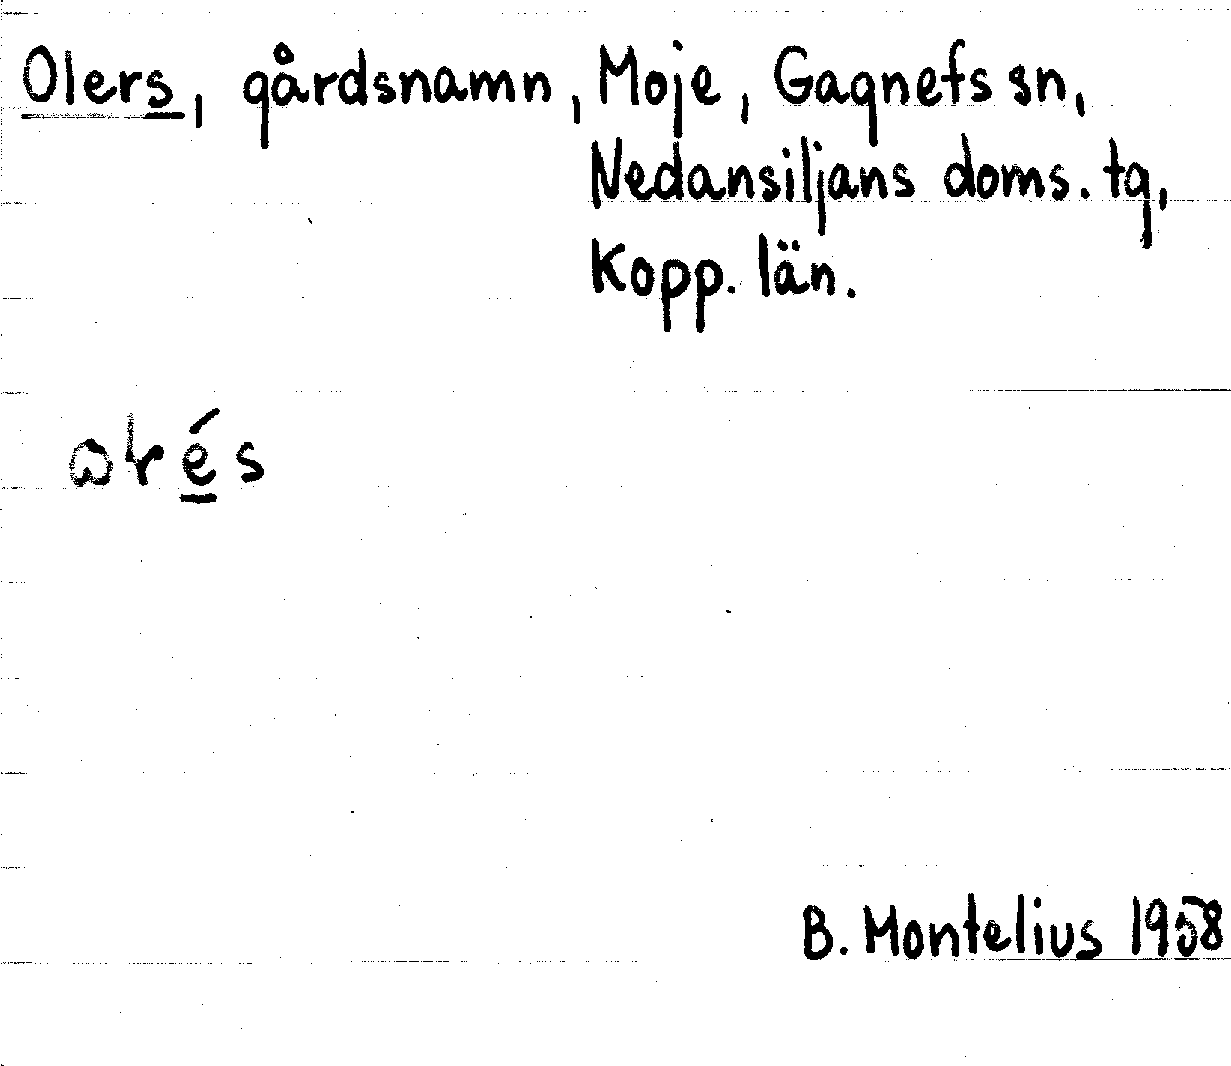 Olers, gårdsnamn, Moje, Gagnefs sn,
Nedansiljans doms. tg,
Kopp. län.
B. Montelius 1958